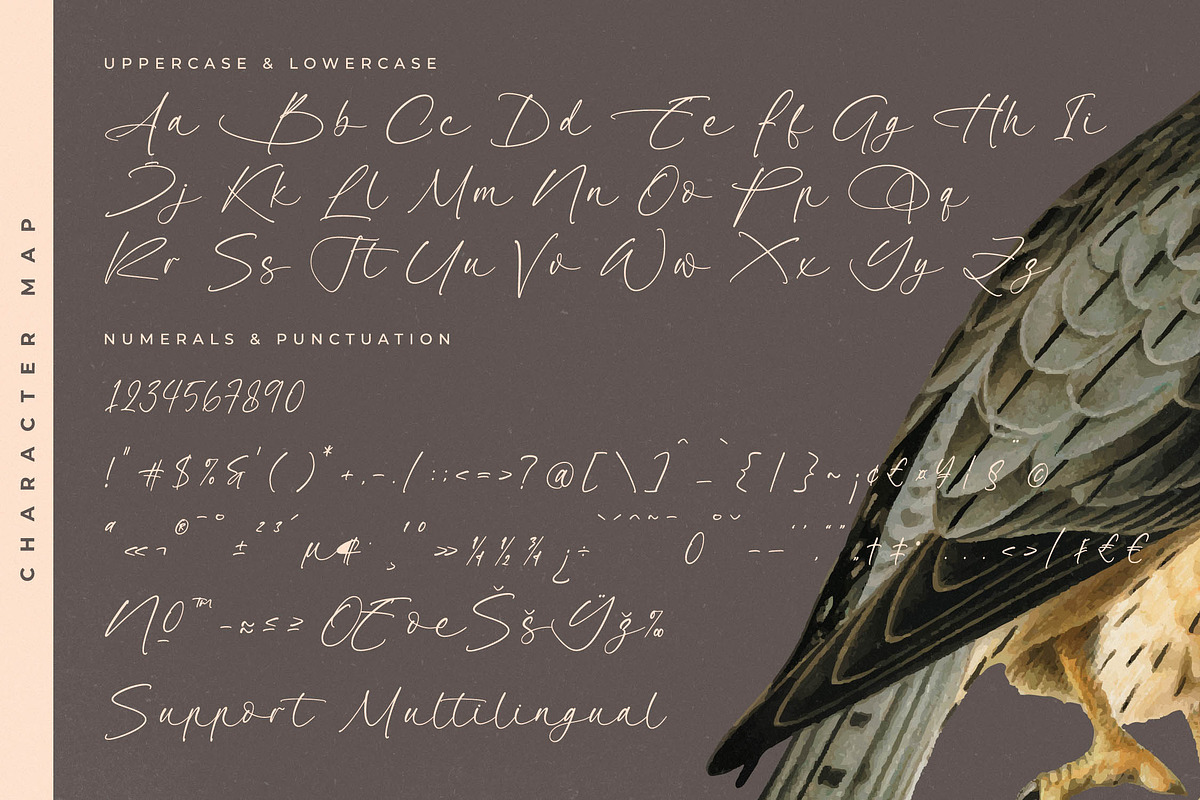 CHARACTER MAP
UPPERCASE & LOWERCASE
Aa Bb Cc Dd Ee Ff Gg Hh Ii
Jj Kk Ll Mm Nn Oo Pp Qq
Rr Ss Tt Uu Vv Ww Xx Yy Zz
NUMERALS & PUNCTUATION
1234567890
!"#$%&'()*+,-./:;<=>?@[\]^_`{|}~¡¢£¤¥¦§¨©
ª«¬®¯°±²³´µ¶·¸¹º»¼½¾¿÷
Nº™−≈≤≥ŒœŠšŸž‰
Support Multilingual